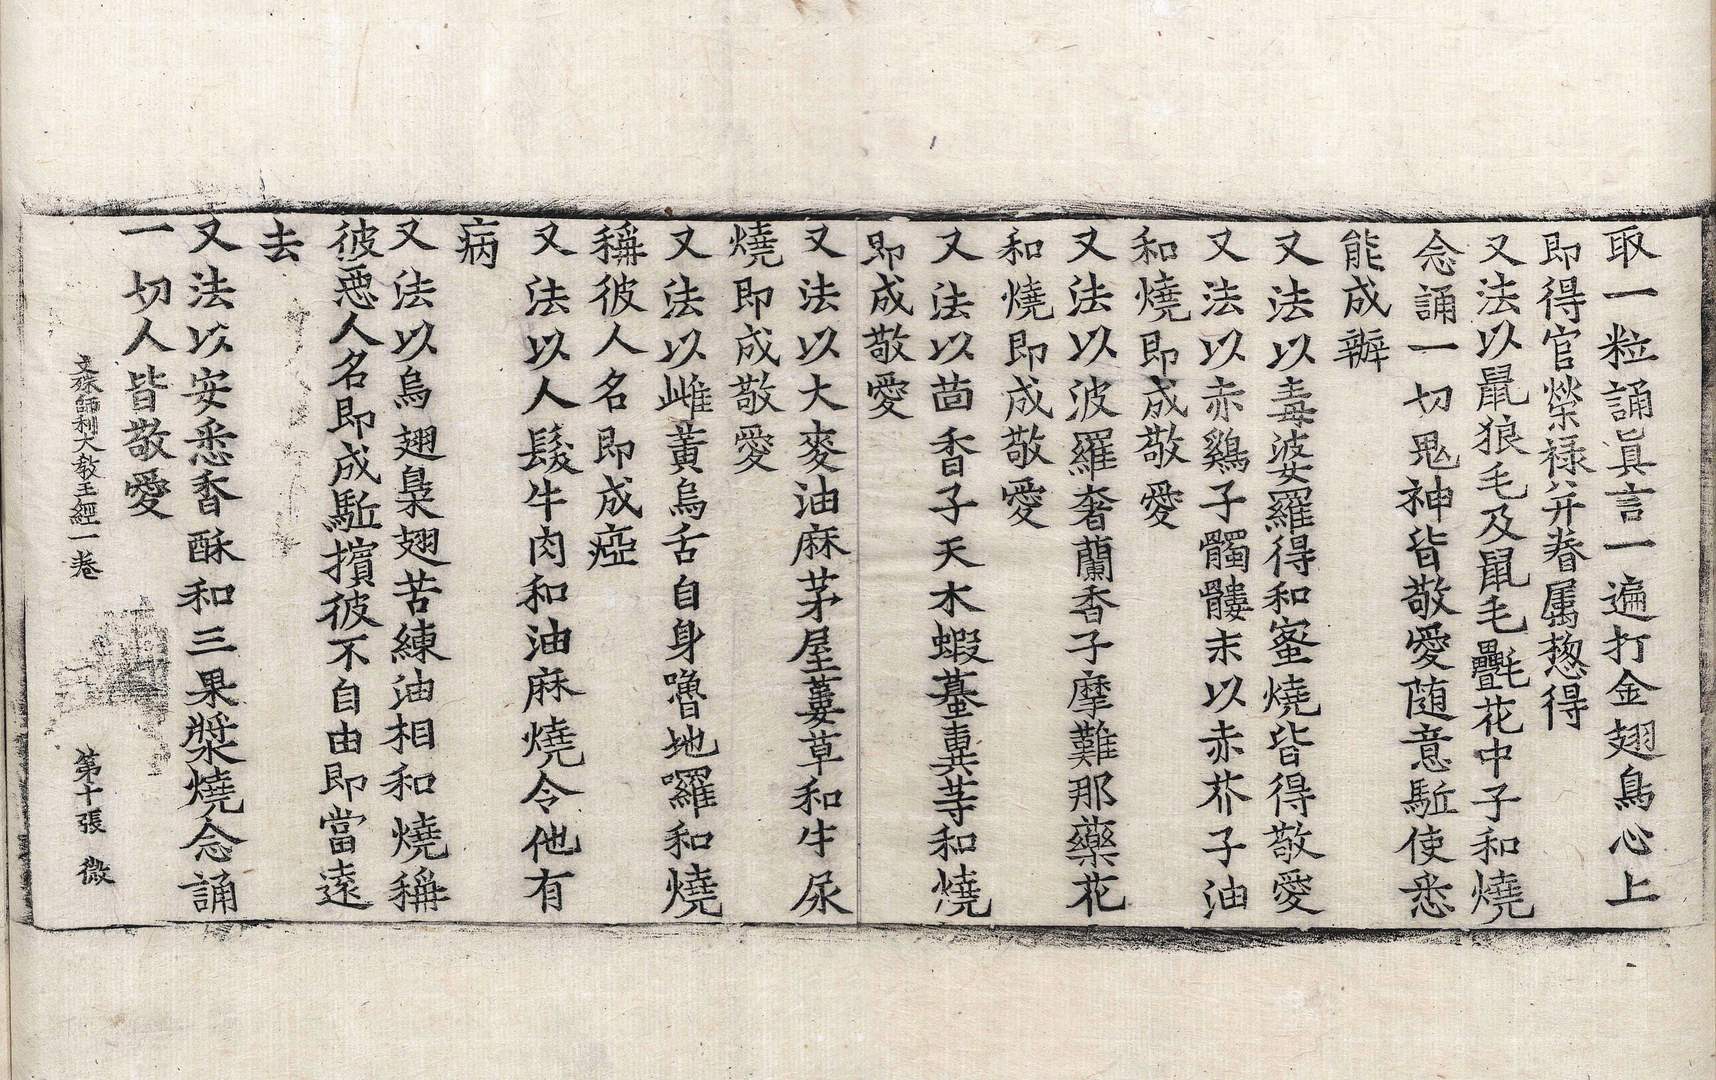 取一粒誦真言一遍打金翅鳥心上
即得官榮祿并眷属揔得
又法以鼠狼毛及鼠毛氎花中子和燒
念誦一切鬼神皆敬愛随意駈使悉
能成辦
又法以毒婆羅得和蜜燒皆得敬愛
又法以赤鷄子髑髏末以赤芥子油
和燒即成敬愛
又法以波羅奢蘭香子摩難那藥花
和燒即成敬愛
又法以茴香子天木蝦蟇糞䒭和燒
即成敬愛
又法以大麥油麻茅屋蔞草和牛尿
燒即成敬愛
又法以雌黃烏舌自身嚕地囉和燒
稱彼人名即成瘂
又法以人髮牛肉和油麻燒令他有
病
又法以烏翅梟翅苦練油相和燒稱
彼惡人名即成駈擯彼不自由即當遠
去
又法以安悉香酥和三果漿燒念誦
一切人皆敬愛
文殊師利大教王經一卷 第十張 微